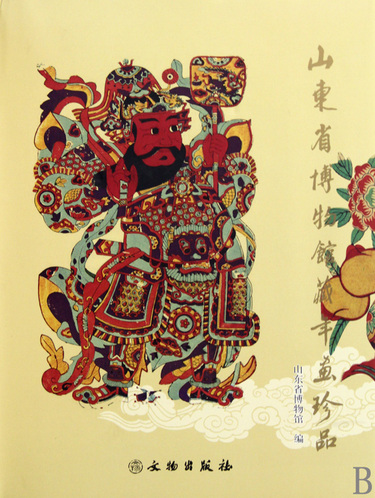 山東省博物館藏年畫珍品
山东省博物馆 编
文物出版社
B